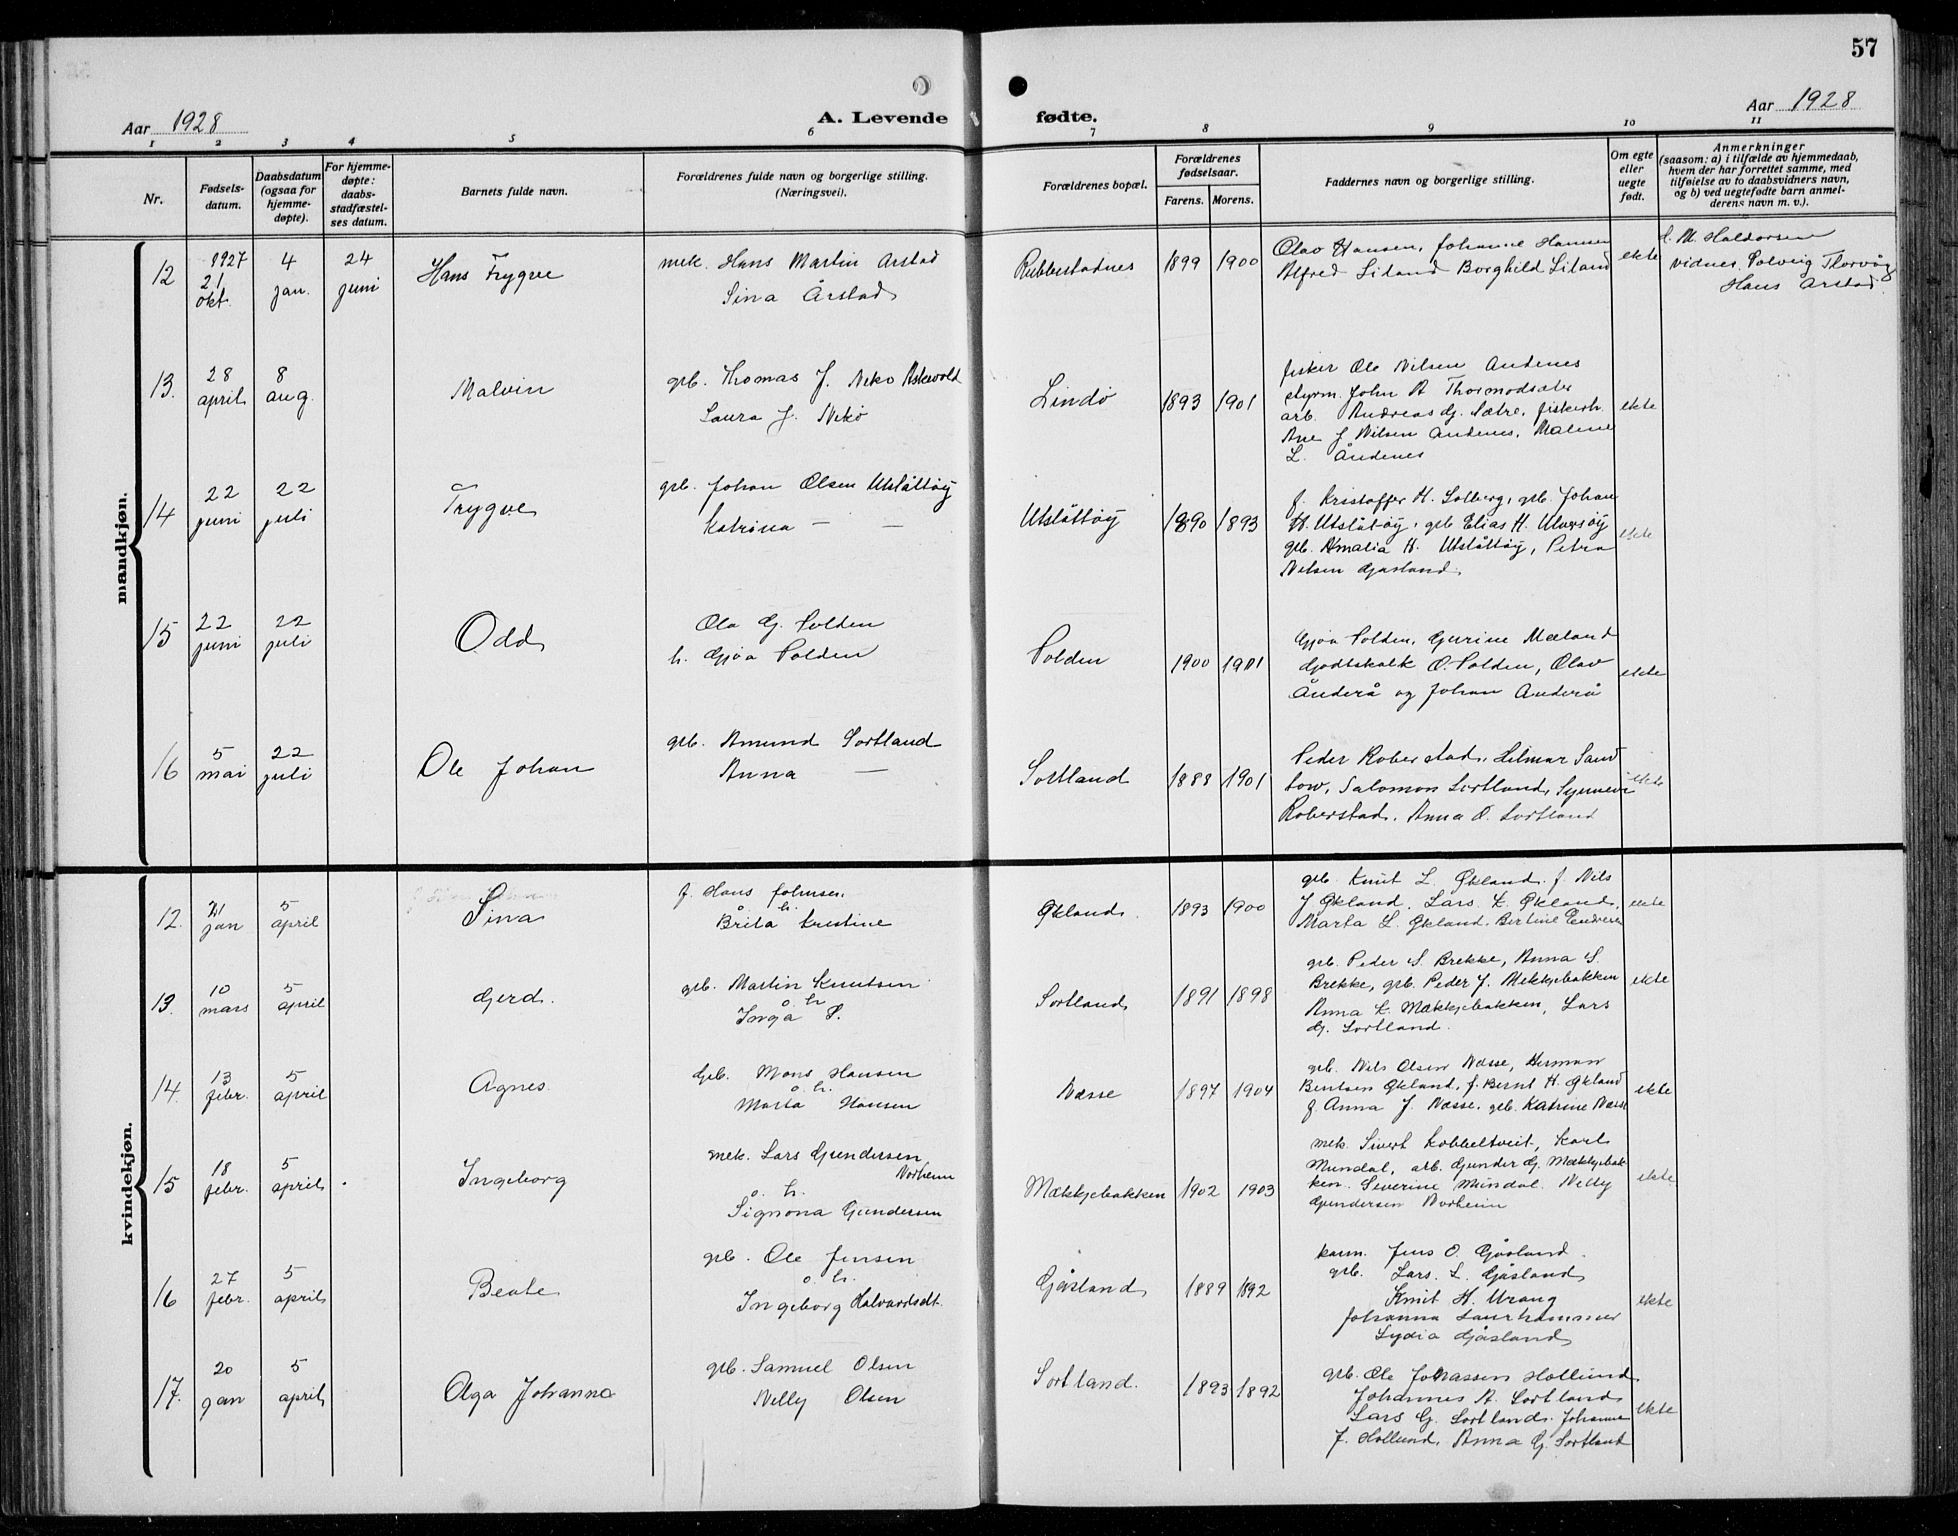 57
Aar 1928
A. Levende fødte.
Aar 1928
1 2 3 4 5 6 7 8 9 10 11
Nr.
Fødsels-
datum.
Daabsdatum
(ogsaa for
hjemme-
døpte).
For hjemme-
døpte:
daabs-
stadfæstel-
ses datum.
Barnets fulde navn.
Forældrenes fulde navn og borgerlige stilling.
(Næringsvei).
Forældrenes bopæl.
Forældrenes
fødselsaar.
Farens. Morens.
Faddernes navn og borgerlige stilling.
Om egte
eller
uegte
født.
Anmerkninger
(saasom: a) i tilfælde av hjemmedaab,
hvem der har forrettet samme, med
tilføielse av to daabsvidners navn,
og b) ved uegtefødte barn anmel-
derens navn m. v.).
mandkjøn.
12
1927
21
okt.
4
jan.
24
juni
Hans Trygve
mek. Hans Martin Arstad
Sina Årstad
Rubbestadnes 1899 1900
Olav Hansen, Johanne Hansen
Alfred Liland Borghild Liland
ekte
H. M. Haldorsen
vidnes. Solveig
Hans Arstad.
13.
28
april
8
aug.
Malvin
grb. Thomas J. Nekø Askevold
Laura J. Nekø
Lindö 1893 1901
fisker Ole Nilsen Andenes
styrm. John A Thormodsæter
arb. Andreas G. Sætre, fiskerh.
Ane J Nilsen Andenes, Malene
L. Åndenes
ekte
14
22
juni
22
juli
Trygve
grb. Johan Olsen Utslåttøy
Katrina — —
Utslåttøy 1890 1893
f. Kristoffer H. Solberg, grb. Johan
H. Utslåtøy, grb Elias H. Ulversøy
grb. Amalia H. Utslåttøy, Petra
Nilsen Gåsland.
ekte
15
22
juni
22
juli
Odd
Ola G. Solden
h. Gjøa Solden
Solden 1900 1901
Gjøa Solden, Gurine Mæland
Godtskalk O. Solden, Olav
Ånderå og Johan Anderå
ekte
16
5
mai
22
juli
Ole Johan
grb. Amund Sortland
Anna —
Sortland 1888 1901
Peder Roberstad, Hilmar Sand
tow, Salomon Sortland, Synneve
Roberstad, Anna O. Sortland
ekte
kvindekjøn.
12.
21
jan
5
april
Sina
f. Hans Johnsen.
o. h.
Brita Kristine
Økland. 1893 1900
grb. Knut L. Økland. f. Nils
J Økland, Lars K. Økland,
Marta L. Økland. Bertine Endresen
ekte
13.
10
mars
5
april
Gerd.
grb. Martin Knutsen
o. h
Inga S.
Sortland 1891 1898
grb. Peder S. Brekke, Anna S.
Brekke, grb. Peder J. Mekkjebakken
Anna K. Mækkjebakken, Lars
G. Sortland.
ekte
14.
13
febr.
5
april
Agnes.
Grb. Mons Hansen
o. h.
Marta Hansen
Næsse 1897 1904
grb. Nils Olsen Næsse, Herman
Bentsen Økland, f. Bernt H. Økland
f. Anna J. Næsse, grb. Katrine Næsse
ekte
15
18
febr.
5
april
Ingeborg
mek. Lars Gundersen
Norheim
o. h.
Signona Gundersen
Mækkjebakken 1902 1903
mek. Sivert Kobbeltveit, Karl
Mundal, arb. Gunder G. Mækkjebak
ken. Severine Mundal. Nelly
Gundersen Norheim
ekte
16
27
febr.
5
april
Beate
grb. Ole Jensen
o. h.
Ingeborg Halvardsdt.
Gåsland 1889 1892
kaum. Jens O. Gåsland.
grb. Lars. L. Gåsland
Knut H. Urang
Johanna Laurhammer
Lydia Gåsland
ekte
17.
20
jan
5
april
Olga Johanna
grb. Samuel Olsen
Nelly Olsen
Sortland. 1893 1892
grb. Ole Johassen Hollund
Johannes A. Sortland
Lars G. Sortland. Johanne
J. Hollund, Anna G. Sortland
ekte